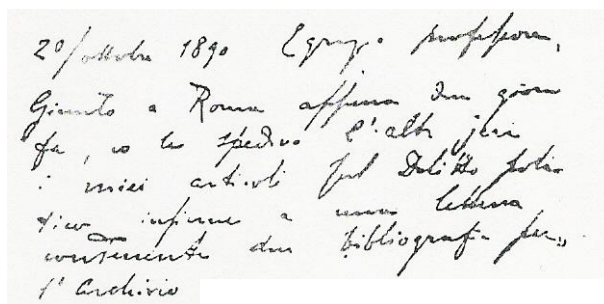 20/ottobre 1890 Egregio professore,
Giunto a Roma appena due giorni
fa, io le spedivo l'altr'jeri
i miei articoli sul Delitto poli-
tico insieme a una lettera
contenente due bibliografie per
l'Archivio